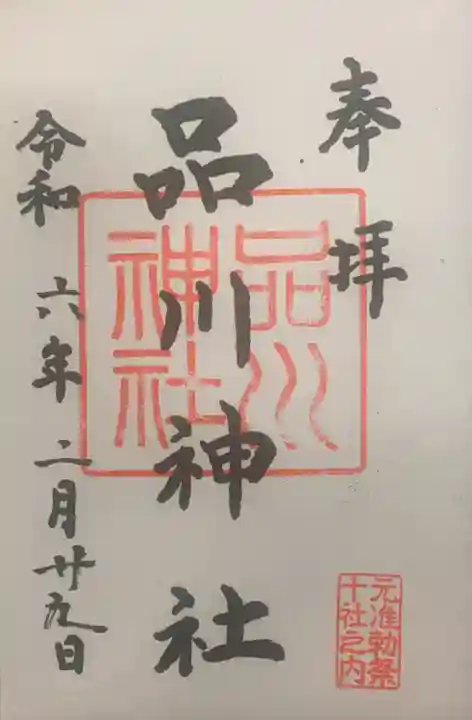 奉拝
品川神社
品川
神社
令和六年二月廿九日
元准勅祭
十社之内